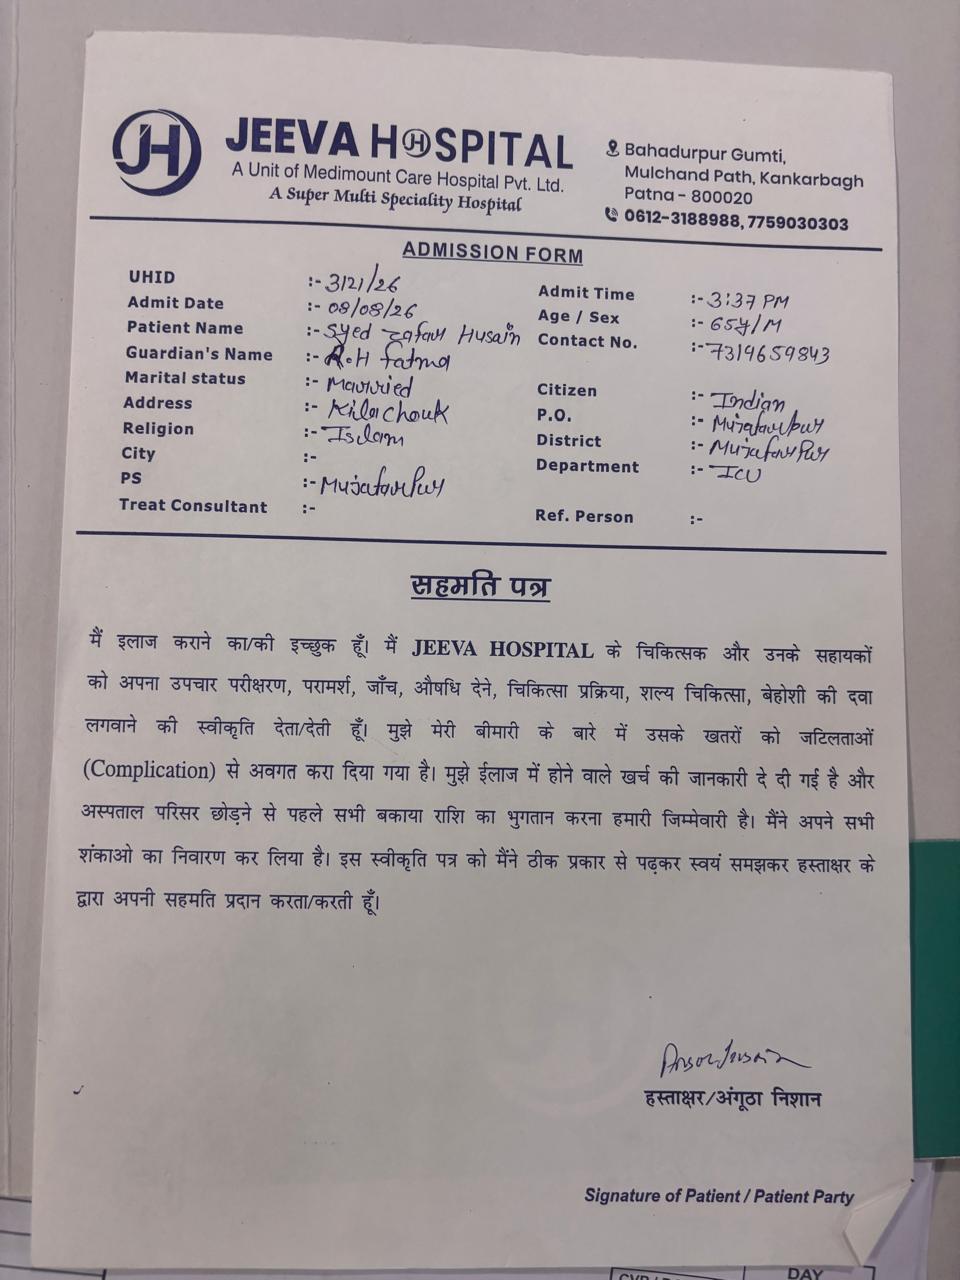 JH JEEVA HOSPITAL
A Unit of Medimount Care Hospital Pvt. Ltd.
A Super Multi Speciality Hospital
Bahadurpur Gumti,
Mulchand Path, Kankarbagh
Patna - 800020
0612-3188988, 7759030303
ADMISSION FORM
UHID :- 3121/26
Admit Time :- 3:37 PM
Admit Date :- 08/08/26
Age / Sex :- 65y/M
Patient Name :- Syed Zafar Husain
Contact No. :- 7319659843
Guardian's Name :- R.H Fatma
Marital status :- Married
Citizen :- Indian
Address :- Kila Chouk
P.O. :- Mujafarpur
Religion :- Islam
District :- Mujafarpur
City :-
Department :- ICU
PS :- Mujafarpur
Treat Consultant :-
Ref. Person :-
सहमति पत्र
मैं इलाज कराने का/की इच्छुक हूँ। मैं JEEVA HOSPITAL के चिकित्सक और उनके सहायकों
को अपना उपचार परीक्षरण, परामर्श, जाँच, औषधि देने, चिकित्सा प्रक्रिया, शल्य चिकित्सा, बेहोशी की दवा
लगवाने की स्वीकृति देता/देती हूँ। मुझे मेरी बीमारी के बारे में उसके खतरों को जटिलताओं
(Complication) से अवगत करा दिया गया है। मुझे ईलाज में होने वाले खर्च की जानकारी दे दी गई है और
अस्पताल परिसर छोड़ने से पहले सभी बकाया राशि का भुगतान करना हमारी जिम्मेवारी है। मैंने अपने सभी
शंकाओ का निवारण कर लिया है। इस स्वीकृति पत्र को मैंने ठीक प्रकार से पढ़कर स्वयं समझकर हस्ताक्षर के
द्वारा अपनी सहमति प्रदान करता/करती हूँ।
हस्ताक्षर/अंगूठा निशान
Signature of Patient / Patient Party
DAY